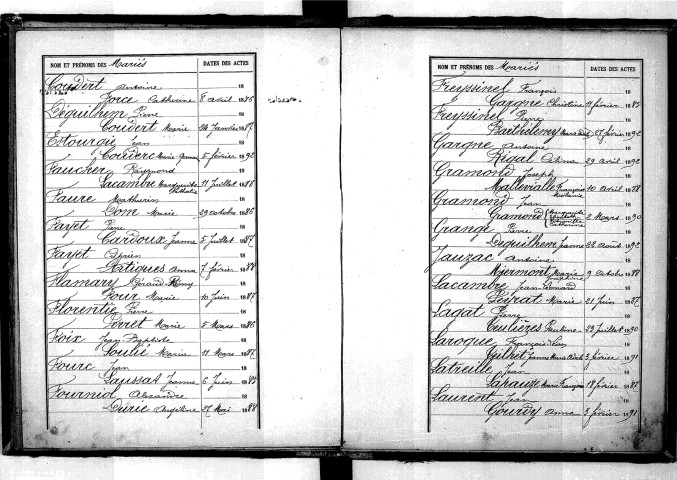 NOM ET PRÉNOMS DES Mariés DATES DES ACTES
Coudert Antoine 18
Force Catherine 8 avril 1886
Déguilhem Pierre 18
Coudert Marie 24 Janvier 1887
Estourgu Jean 18
Couderc Marie 5 février 1892
Faucher Raymond 18
Lacambre Marguerite Nathalie 11 Juillet 1888
Faure Mathurin 18
Dom Marie 29 octobre 1886
Fayet Pierre 18
Cardoux Jeanne 5 Juillet 1887
Fayet 18
Artigues Anna 7 février 1888
Flamary Gérard Rémy 18
Four Marie 10 Juin 1887
Florentie Pierre 18
Peyret Marie 5 Mars 1886
Foix Jean Baptiste 18
Soulié Marie 11 Mars 1887
Fourc Jean 18
Laussat Jeanne 6 Juin 1885
Fourniol Alexandre 18
Durie Angeline 27 Mai 1888
NOM ET PRÉNOMS DES Mariés DATES DES ACTES
Freyssinel François 18
Gagone Christine 11 février 1887
Freyssinel Pierre 18
Barthélemy Marie 27 février 1892
Gargne Antoine 18
Rigal Célina 29 avril 1892
Gramond Joseph 18
Mallevialle Françoise 10 avril 1888
Gramond Jean 18
Gramond Catherine 2 Mars 1890
Grange Pierre 18
Deguilhem Jeanne 22 août 1892
Jauzac Antoine 18
Miermont Marie Joséphine 9 octobre 1888
Lacambre Jean Léonard 18
Peyrat Marie 21 Juin 1887
Lagat Pierre 18
Culières Pauline 22 Juillet 1890
Laroque François 18
Gibret Jeanne Marie 3 février 1891
Latreille Jean 18
Lapauze Marie Françoise 18 février 1887
Laurent Jean 18
Gourdy Anna 3 février 1891